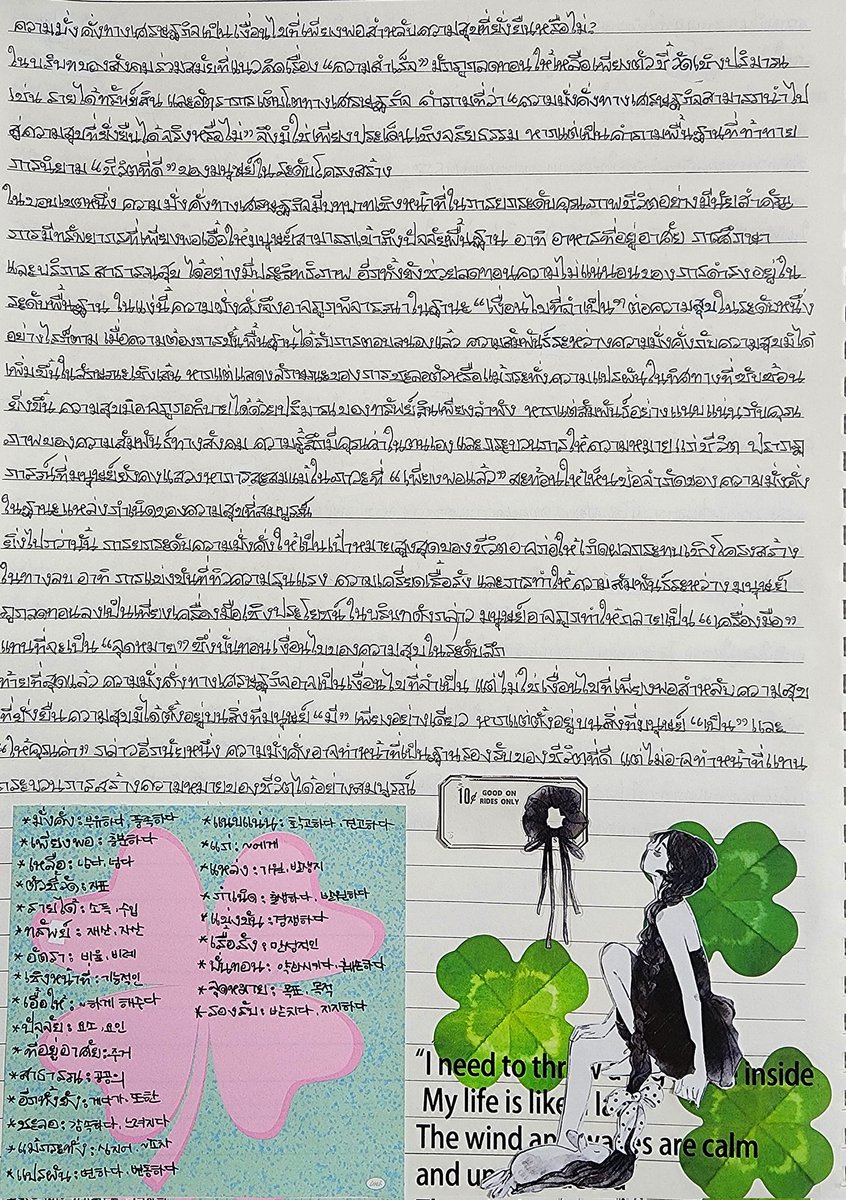 ความมั่งคั่งทางเศรษฐกิจเป็นเงื่อนไขที่เพียงพอสำหรับความสุขที่ยั่งยืนหรือไม่?
ในบริบทของสังคมร่วมสมัยที่แนวคิดเรื่อง “ความสำเร็จ” มักถูกลดทอนให้เหลือเพียงตัวชี้วัดเชิงปริมาณ
เช่น รายได้ทรัพย์สิน และอัตราการเติบโตทางเศรษฐกิจ คำถามที่ว่า “ความมั่งคั่งทางเศรษฐกิจสามารถนำไป
สู่ความสุขที่ยั่งยืนได้จริงหรือไม่” จึงมิใช่เพียงประเด็นเชิงจริยธรรม หากแต่เป็นคำถามพื้นฐานที่ท้าทาย
การนิยาม “ชีวิตที่ดี” ของมนุษย์ในระดับโครงสร้าง
ในขอบเขตหนึ่ง ความมั่งคั่งทางเศรษฐกิจมีบทบาทเชิงหน้าที่ในการยกระดับคุณภาพชีวิตอย่างมีนัยสำคัญ
การมีทรัพยากรที่เพียงพอเอื้อให้มนุษย์สามารถเข้าถึงปัจจัยพื้นฐาน อาทิ อาหารที่อยู่อาศัย การศึกษา
และบริการ สาธารณสุข ได้อย่างมีประสิทธิภาพ อีกทั้งยังช่วยลดทอนความไม่แน่นอนของการดำรงอยู่ใน
ระดับพื้นฐาน ในแง่นี้ ความมั่งคั่งจึงอาจถูกพิจารณาในฐานะ “เงื่อนไขที่จำเป็น” ต่อความสุขในระดับหนึ่ง
อย่างไรก็ตาม เมื่อความต้องการขั้นพื้นฐานได้รับการตอบสนองแล้ว ความสัมพันธ์ระหว่างความมั่งคั่งกับความสุขมิได้
เพิ่มขึ้นในลักษณะเชิงเส้น หากแต่แสดงลักษณะของการชะลอตัวหรือแม้กระทั่งความแปรผันในทิศทางที่ซับซ้อน
ยิ่งขึ้น ความสุขมิอาจถูกอธิบายได้ด้วยปริมาณของทรัพย์สินเพียงลำพัง หากแต่สัมพันธ์อย่างแนบแน่นกับคุณ
ภาพของความสัมพันธ์ทางสังคม ความรู้สึกมีคุณค่าในตนเองและกระบวนการให้ความหมายแก่ชีวิต ปรากฏ
การณ์ที่มนุษย์ยังคงแสวงหาการสะสมแม้ในภาวะที่ “เพียงพอแล้ว” สะท้อนให้เห็นข้อจำกัดของ ความมั่งคั่ง
ในฐานะแหล่งกำเนิดของความสุขที่สมบูรณ์
ยิ่งไปกว่านั้น การยกระดับความมั่งคั่งให้เป็นเป้าหมายสูงสุดของชีวิตอาจก่อให้เกิดผลกระทบเชิงโครงสร้าง
ในทางลบ อาทิ การแข่งขันที่ทวีความรุนแรง ความเครียดเรื้อรัง และการทำให้ความสัมพันธ์ระหว่างมนุษย์
ถูกลดทอนลงเป็นเพียงเครื่องมือเชิงประโยชน์ ในบริบทดังกล่าว มนุษย์อาจถูกทำให้กลายเป็น “เครื่องมือ”
แทนที่จะเป็น “จุดหมาย” ซึ่งบั่นทอนเงื่อนไขของความสุขในระดับลึก
ท้ายที่สุดแล้ว ความมั่งคั่งทางเศรษฐกิจอาจเป็นเงื่อนไขที่จำเป็น แต่ไม่ใช่เงื่อนไขที่เพียงพอสำหรับความสุข
ที่ยั่งยืน ความสุขมิได้ตั้งอยู่บนสิ่งที่มนุษย์ “มี” เพียงอย่างเดียว หากแต่ตั้งอยู่บนสิ่งที่มนุษย์ “เป็น” และ
“ให้คุณค่า” กล่าวอีกนัยหนึ่ง ความมั่งคั่งอาจทำหน้าที่เป็นฐานรองรับของชีวิตที่ดี แต่ไม่อาจทำหน้าที่แทน
กระบวนการสร้างความหมายของชีวิตได้อย่างสมบูรณ์
*มั่งคั่ง : 부유하다 풍족하다
*เพียงพอ : 충분하다
*เหลือ : 남다, 넘다
*ตัวชี้วัด : 지표
*รายได้ : 소득, 수입
*ทรัพย์ : 재산, 자산
*อัตรา : 비율, 비례
*เชิงหน้าที่ : 기능적인
*เอื้อให้ : ~하게 해주다
*ปัจจัย : 요소, 요인
*ที่อยู่อาศัย : 주거
*สาธารณ : 공공의
*อีกทั้งยัง : 게다가, 또한
*ชะลอ : 감속하다, 느려지다
*แม้กระทั่ง : 심지어, ~조차
*แปรผัน : 변하다, 변동하다
*แนบแน่น : 확고하다, 견고하다
*แก่ : ~에게
*แหล่ง : 가원, 발생지
*กำเนิด : 출생하다, 발원하다
*แข่งขัน : 경쟁하다
*เรื้อรัง : 만성적인
*บั่นทอน : 약화시키다,
*จุดหมาย : 목표, 목적
*รองรับ : 받치다, 지지하다
10¢ GOOD ON
RIDES ONLY
“I need to inside
My life is like
The wind are calm
and